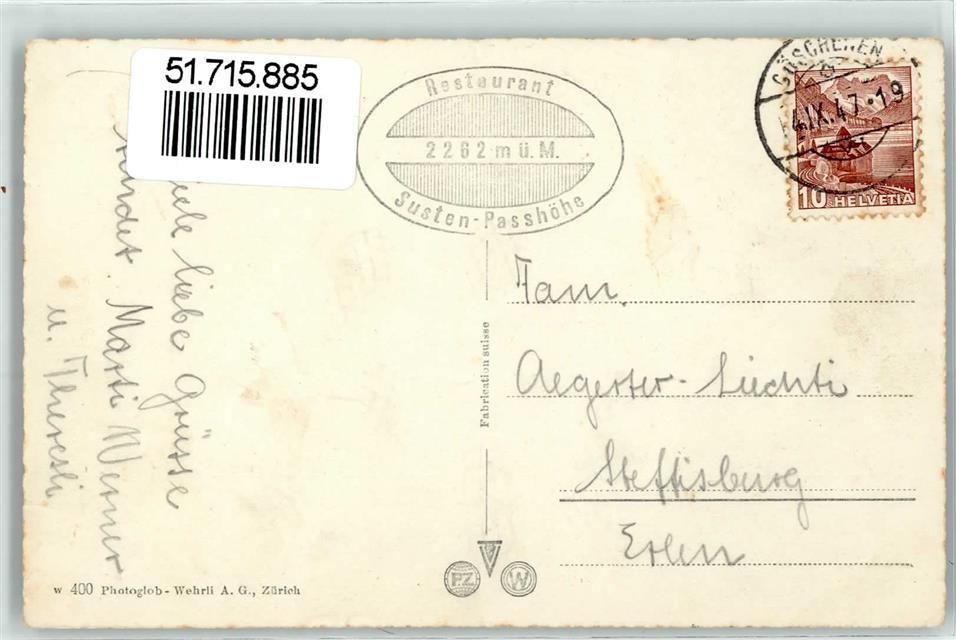 51.715.885
Restaurant
2262 m ü. M.
Susten-Passhöhe
GÖSCHENEN
4.IX.47.-19
10 HELVETIA
Viele liebe Grüsse
sendet Marti Werner
u. Theresli
Fabrication suisse
Fam.
Aegerter-Liechti
Steffisburg
Erlen
PZ W
w 400 Photoglob-Wehrli A. G., Zürich